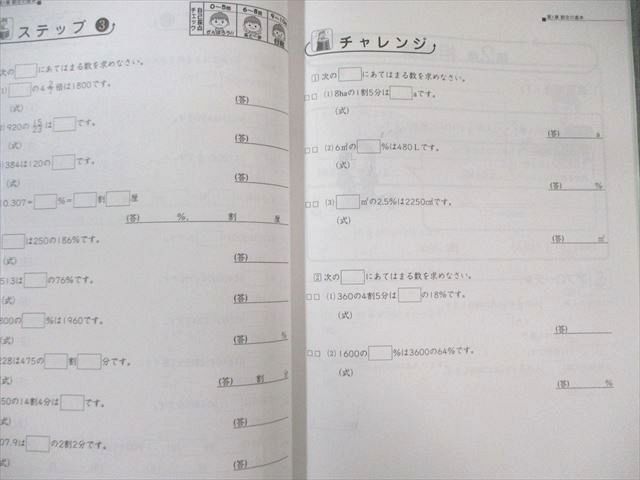 ステップ 3
自己採点チェック
0~5問
6~8問
9~10問
がんばろう!!
次の□にあてはまる数を求めなさい。
□の4 2/7倍は1800です。
(式)
(答)
920の15/23は□です。
(式)
(答)
384は120の□です。
(式)
(答)
0.307=□%=□割□厘
(答) %, 割 厘
□は250の186%です。
(式)
(答)
513は□の76%です。
(式)
(答)
800の□%は1960です。
(式)
(答) %
228は475の□割□分です。
(式)
(答) 割 分
50の14割4分は□です。
(式)
(答)
07.9は□の2割2分です。
(式)
(答)
第1章 割合の基本
チャレンジ
1 次の□にあてはまる数を求めなさい。
□□ (1) 8haの1割5分は□aです。
(式)
(答) a
□□ (2) 6㎥の□%は480Lです。
(式)
(答) %
□□ (3) □㎡の2.5%は2250㎠です。
(式)
(答) ㎡
2 次の□にあてはまる数を求めなさい。
□□ (1) 360の4割5分は□の18%です。
(式)
(答)
□□ (2) 1600の□%は3600の64%です。
(式)
(答) %